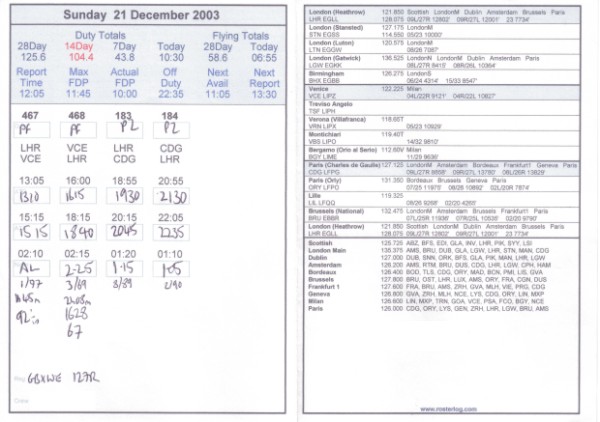 Sunday 21 December 2003
Duty Totals Flying Totals
28Day 14Day 7Day Today 28Day Today
125.6 104.4 43.8 10:30 58.6 06:55
Report Time Max FDP Actual FDP Off Duty Next Avail Next Report
12:05 11:45 10:00 22:35 11:05 13:30
467 468 183 184
PF PF P2 P2
LHR VCE LHR CDG
VCE LHR CDG LHR
13:05 16:00 18:55 20:55
1310 1615 1930 2130
15:15 18:15 20:15 22:05
1515 1840 2045 2235
02:10 02:15 01:20 01:10
AL 2.25 1.15 1.05
1/97 3/69 3/89 2/90
1628
67
Reg GBXWE 127R
Crew
London (Heathrow) 121.850 Southend LondonM Dublin Amsterdam Brussels Paris
LHR EGLL 128.075 09L/27R 12802' 09R/27L 12001' 23 7734'
London (Stansted) 127.175 LondonM
STN EGSS 114.550 05/23 10000'
London (Luton) 120.575 LondonM
LTN EGGW 08/26 7087'
London (Gatwick) 136.525 LondonM LondonM Dublin Amsterdam Paris
LGW EGKK
Birmingham 126.275 LondonS
BHX EGBB 15/33 8547'
Venice 122.225 Milan
VCE LIPZ 04L/22R 9121' 04R/22L 10827'
Treviso Angelo
TSF LIPH
Verona (Villafranca) 118.65T
VRN LIPX 05/23
Montichiari 119.40T
VBS LIPO 14/32 9810'
Bergamo (Orio al Serio) 112.60V Milan
BGY LIME 11/29
Paris (Charles de Gaulle) 127.125 LondonM Amsterdam Bordeaux Frankfurt1 Geneva Paris
CDG LFPG 08L/26R 13829'
Paris (Orly) 131.350 Bordeaux Brussels Geneva Paris
ORY LFPO 07/25 11975' 08/26 10892' 02L/20R 7874'
Lille 119.325
LIL LFQQ 08/26 02/20
Brussels (National) 132.475 LondonM Amsterdam Brussels Frankfurt1 Paris
BRU EBBR 07L/25R 07R/25L 02/20
London (Heathrow) 121.850 Southend LondonM Dublin Amsterdam Brussels Paris
LHR EGLL 128.075 09L/27R 12802' 09R/27L 12001' 23 7734'
Scottish 125.725 ABZ, BFS, EDI, GLA, INV, LHR, PIK, SYY, LSI
London Main 135.375 AMS, BRU, DUB, GLA, LHR, LGW, LHR, STN, MAN, CDG
Dublin 127.000 DUB, SNN, ORK, BFS, GLA, PIK, MAN, LHR, LGW
Amsterdam 126.200 AMS, RTM, BRU, DUS, CDG, LHR, LGW, CPH, HAM
Bordeaux 126.400 BOD, TLS, CDG, ORY, MAD, BCN, PMI, LIS, GVA
Brussels 127.800 BRU, OST, LHR, LUX, AMS, ORY, FRA, CGN, DUS
Frankfurt 1 127.600 FRA, BRU, AMS, ZRH, GVA, MLH, VIE, PRG, CDG
Geneva 126.800 GVA, ZRH, MLH, NCE, LYS, CDG, ORY, LIN, MXP
Milan 126.600 LIN, MXP, TRN, GOA, VCE, PSA, FCO, BGY, NCE
Paris 126.000 CDG, ORY, LYS, GEN, ZRH, LHR, LGW, BRU, AMS
www.rosterlog.com